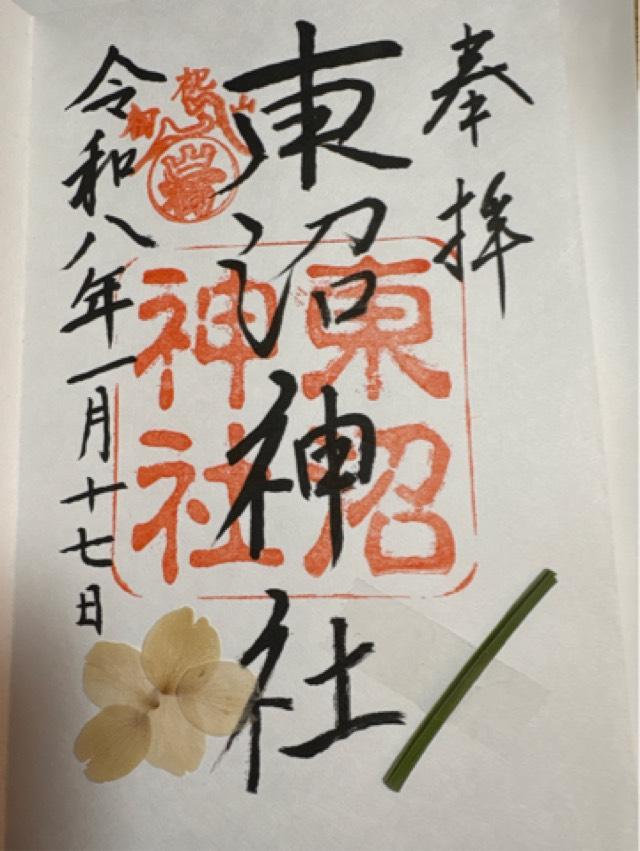 奉拝
東沼神社
令和八年一月十七日
東沼
神社